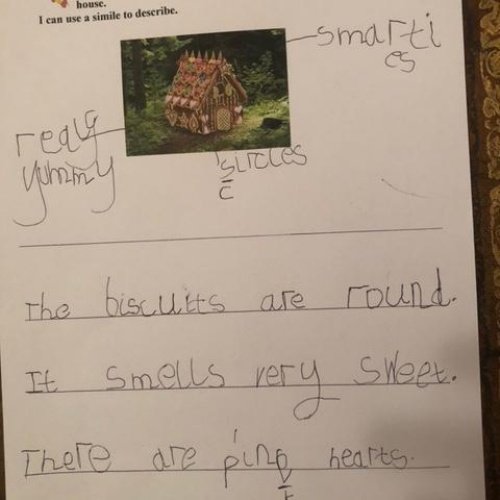 house.
I can use a simile to describe.
smarti
es
realy
yummy
sircles
c
The biscuits are round.
It smells very sweet.
There are hearts.